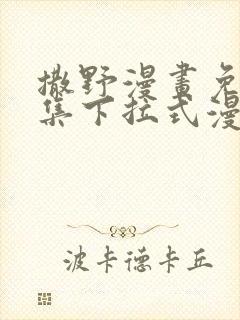 撒野漫畫免
集下拉式漫
波卡德卡丘